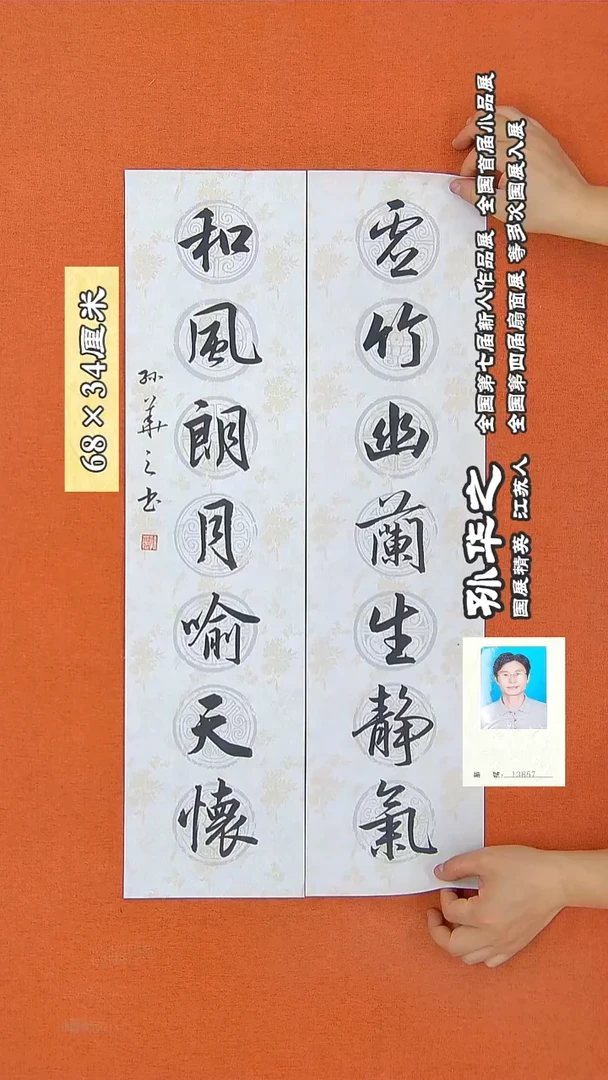 虚竹幽蘭生静氣
和風朗月喻天懷
孙華之书
68×34厘米
孙华之
国展精英 江苏人
全国第七届新人作品展 全国首届小品展
全国第四届扇面展 等多次国展入展
13867